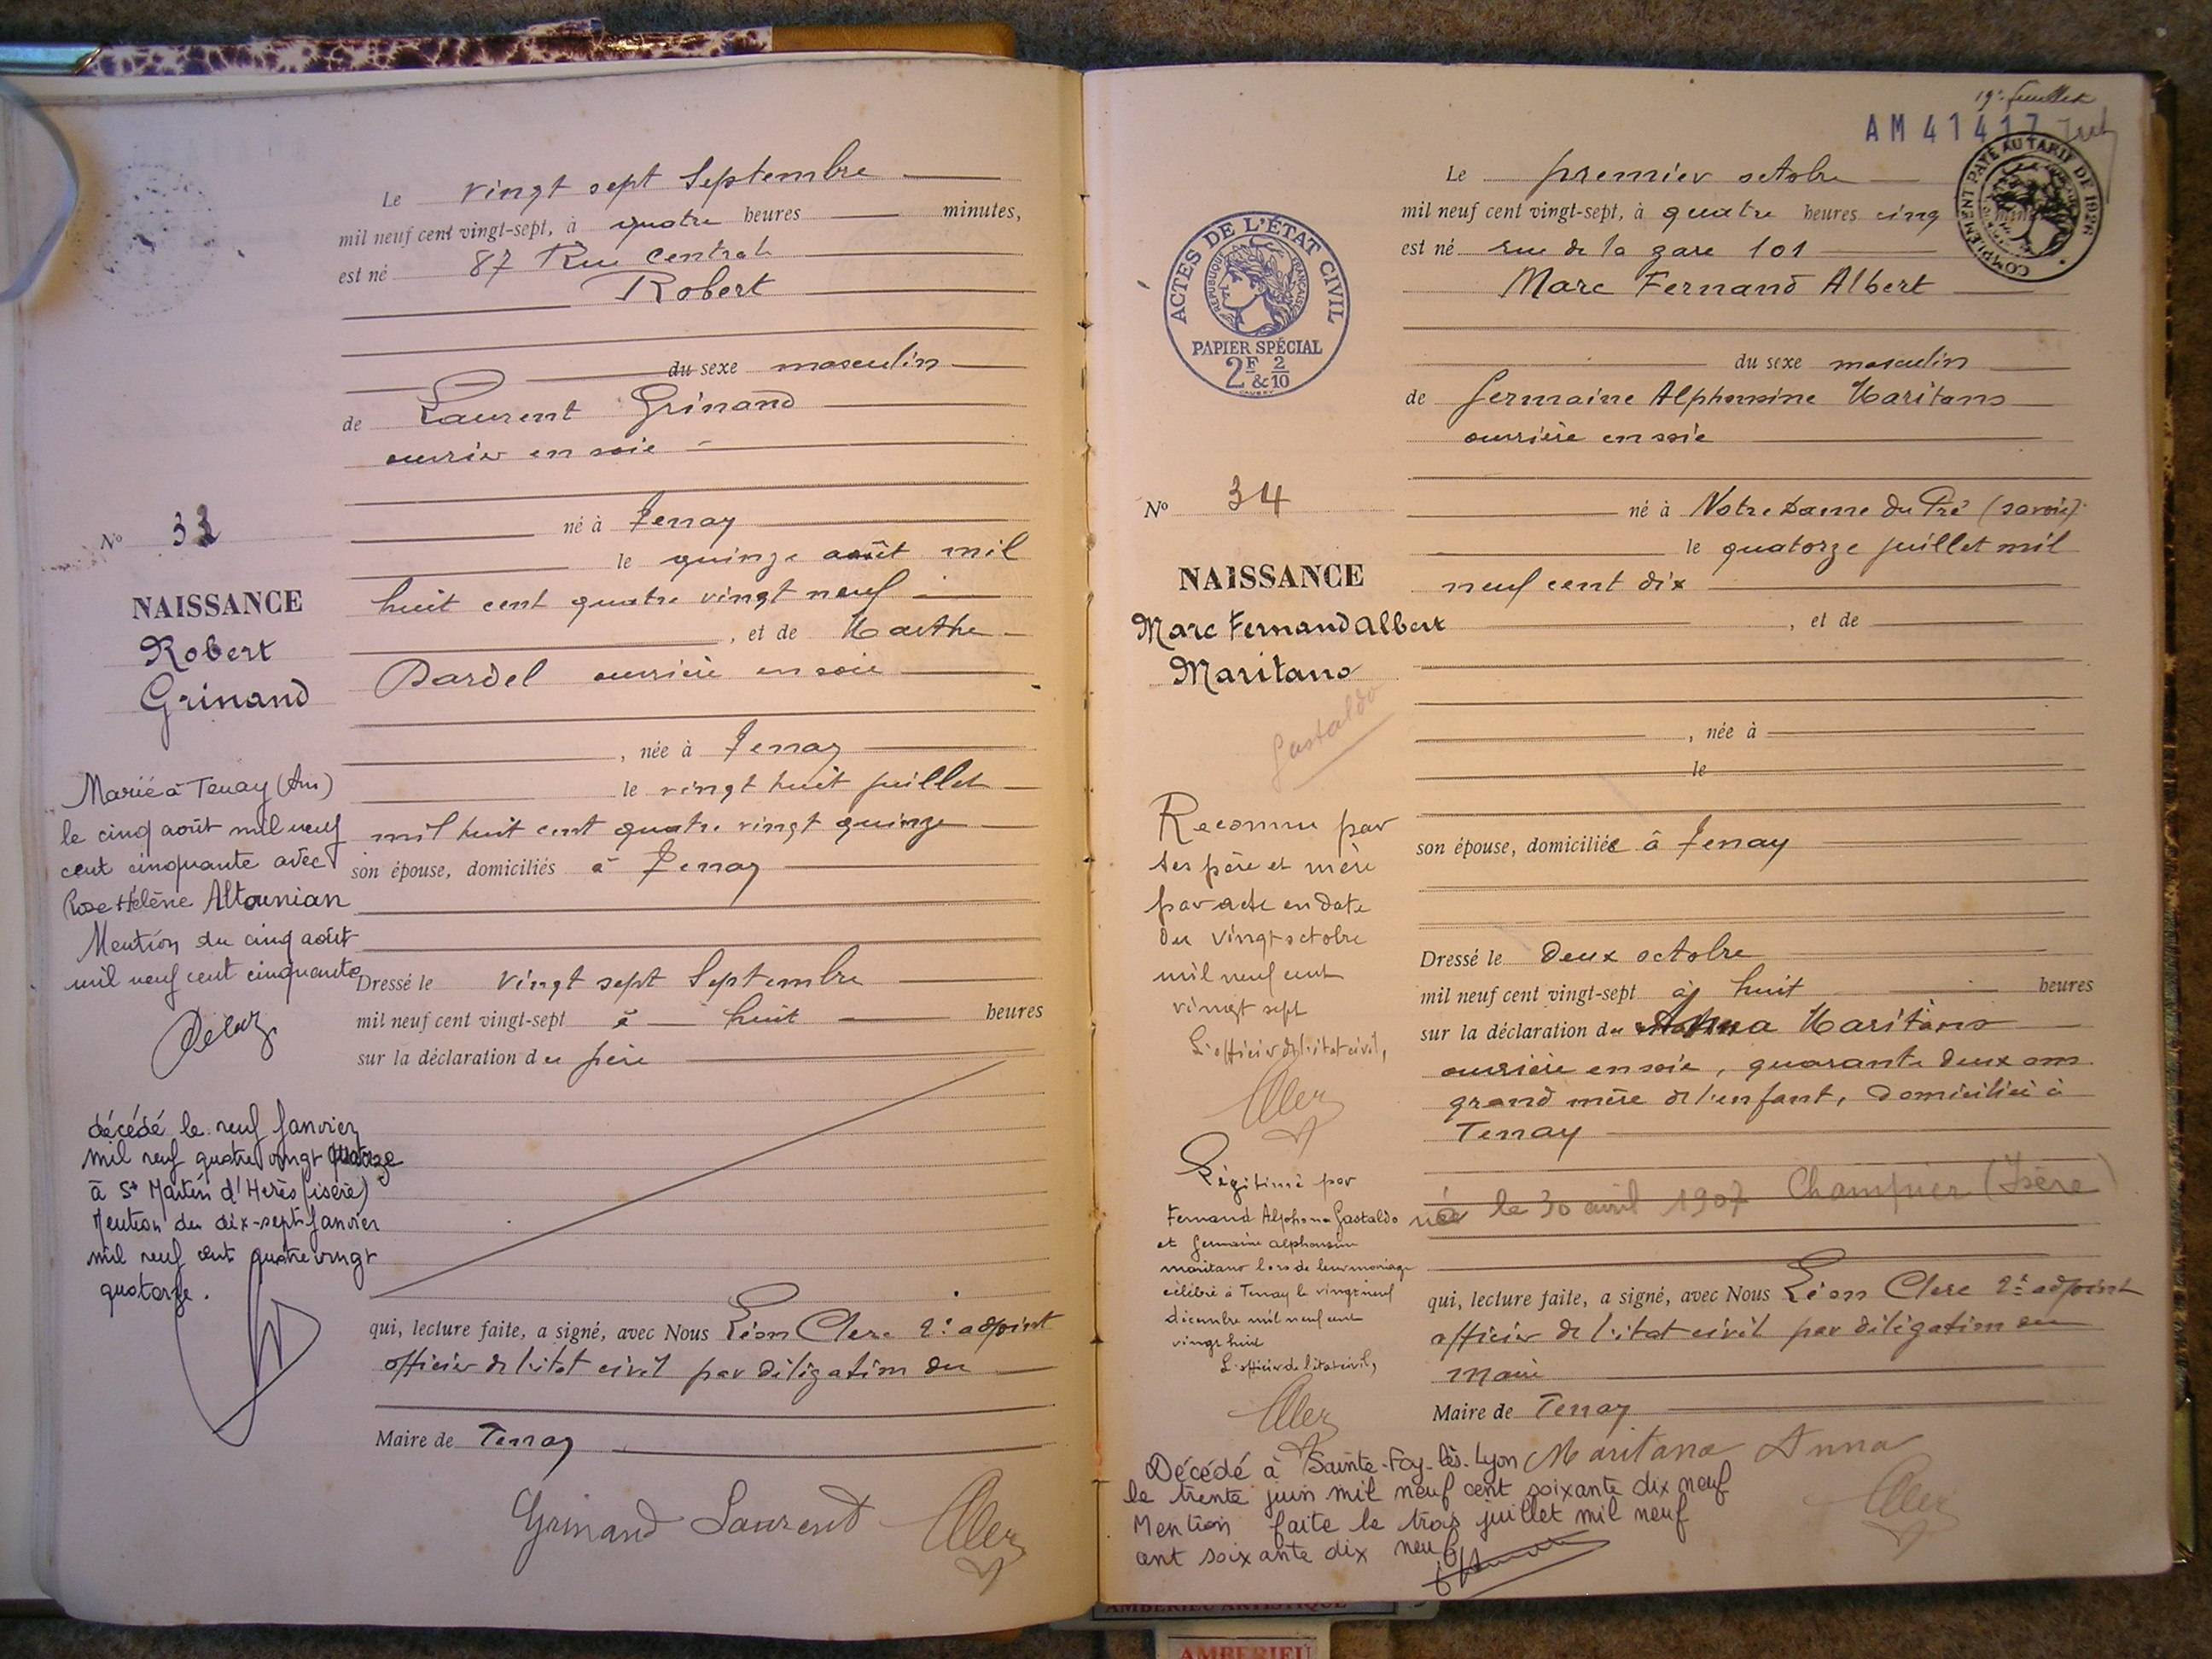 Le vingt sept Septembre
mil neuf cent vingt-sept, à quatre heures minutes,
est né 87 Rue Centrale
Robert
du sexe masculin
de Laurent Grinand
ouvrier en soie
né à Tenay
le quinze août mil
huit cent quatre vingt neuf
, et de Marthe
Dardel ouvrière en soie
, née à Tenay
le vingt huit juillet
mil huit cent quatre vingt quinze
son épouse, domiciliés à Tenay
Dressé le vingt sept Septembre
mil neuf cent vingt-sept à huit heures
sur la déclaration du père
qui, lecture faite, a signé, avec Nous Léon Clerc 2e adjoint
officier de l'état civil par délégation du
Maire de Tenay
Grinand Laurent
No 33
NAISSANCE
Robert
Grinand
Marié à Tenay (Ain)
le cinq août mil neuf
cent cinquante avec
Rose Hélène Altounian
Mention du cinq août
mil neuf cent cinquante
décédé le neuf Janvier
mil neuf quatre vingt quatorze
à St Martin d'Hères (isère)
Mention du dix-sept Janvier
mil neuf cent quatre vingt
quatorze.
19e feuillet
AM 41417
COMPLÉMENT PAYÉ AU TARIF DE 1926
ACTES DE L'ÉTAT CIVIL
RÉPUBLIQUE FRANÇAISE
PAPIER SPÉCIAL
2F & 2/10
Le premier octobre
mil neuf cent vingt-sept, à quatre heures cinq
est né rue de la gare 101
Marc Fernand Albert
du sexe masculin
de Germaine Alphonsine Maritano
ouvrière en soie
né à Notre Dame du Pré (savoie)
le quatorze juillet mil
neuf cent dix
, et de
, née à
le
son épouse, domiciliée à Tenay
Dressé le deux octobre
mil neuf cent vingt-sept à huit heures
sur la déclaration de Anna Maritano
ouvrière en soie, quarante deux ans
grand mère de l'enfant, domiciliée à
Tenay
né le 30 avril 1907 Champier (Isère)
qui, lecture faite, a signé, avec Nous Léon Clerc 2e adjoint
officier de l'état civil par délégation du
maire
Maire de Tenay
Maritano Anna
No 34
NAISSANCE
Marc Fernand Albert
Maritano
Gastaldo
Reconnu par
ses père et mère
par acte en date
du vingt octobre
mil neuf cent
vingt sept
L'officier de l'état civil,
Légitimé par
Fernand Alphonse Gastaldo
et Germaine alphonsine
maritano lors de leur mariage
célébré à Tenay le vingt neuf
décembre mil neuf cent
vingt huit
L'officier de l'état civil,
Décédé à Sainte-Foy-lès-Lyon
le trente juin mil neuf cent soixante dix neuf
Mention faite le trois juillet mil neuf
cent soixante dix neuf
AMBERIEU ARTISTIQUE
AMBERIEU